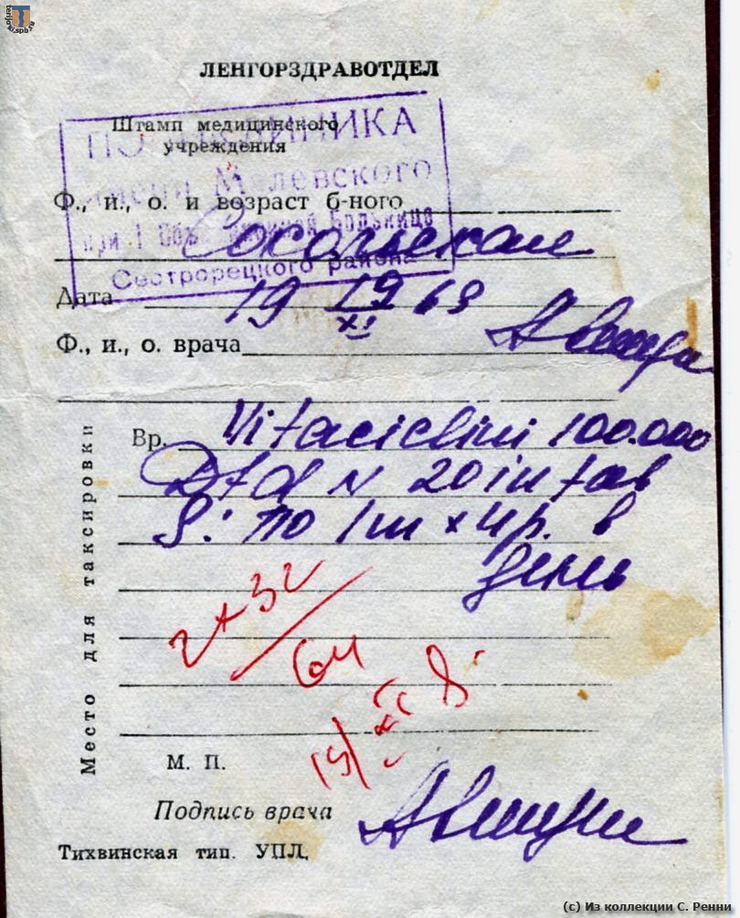 terijoki.spb.ru
ЛЕНГОРЗДРАВОТДЕЛ
Штамп медицинского
учреждения
ПОЛИКЛИНИКА
имени Малевского
при 1 Больнице
Сестрорецкого района
Ф., и., о. и возраст б-ного
Дата 19 19 69
XI
Ф., и., о. врача
Место для таксировки
Вр. Vitaciclini 100.000
Dtd N 20 in tab
S: по 1 т x 4 р. в
день
2 x 32
64
19/XI
М. П.
Подпись врача
Тихвинская тип. УПЛ.
(с) Из коллекции С. Ренни